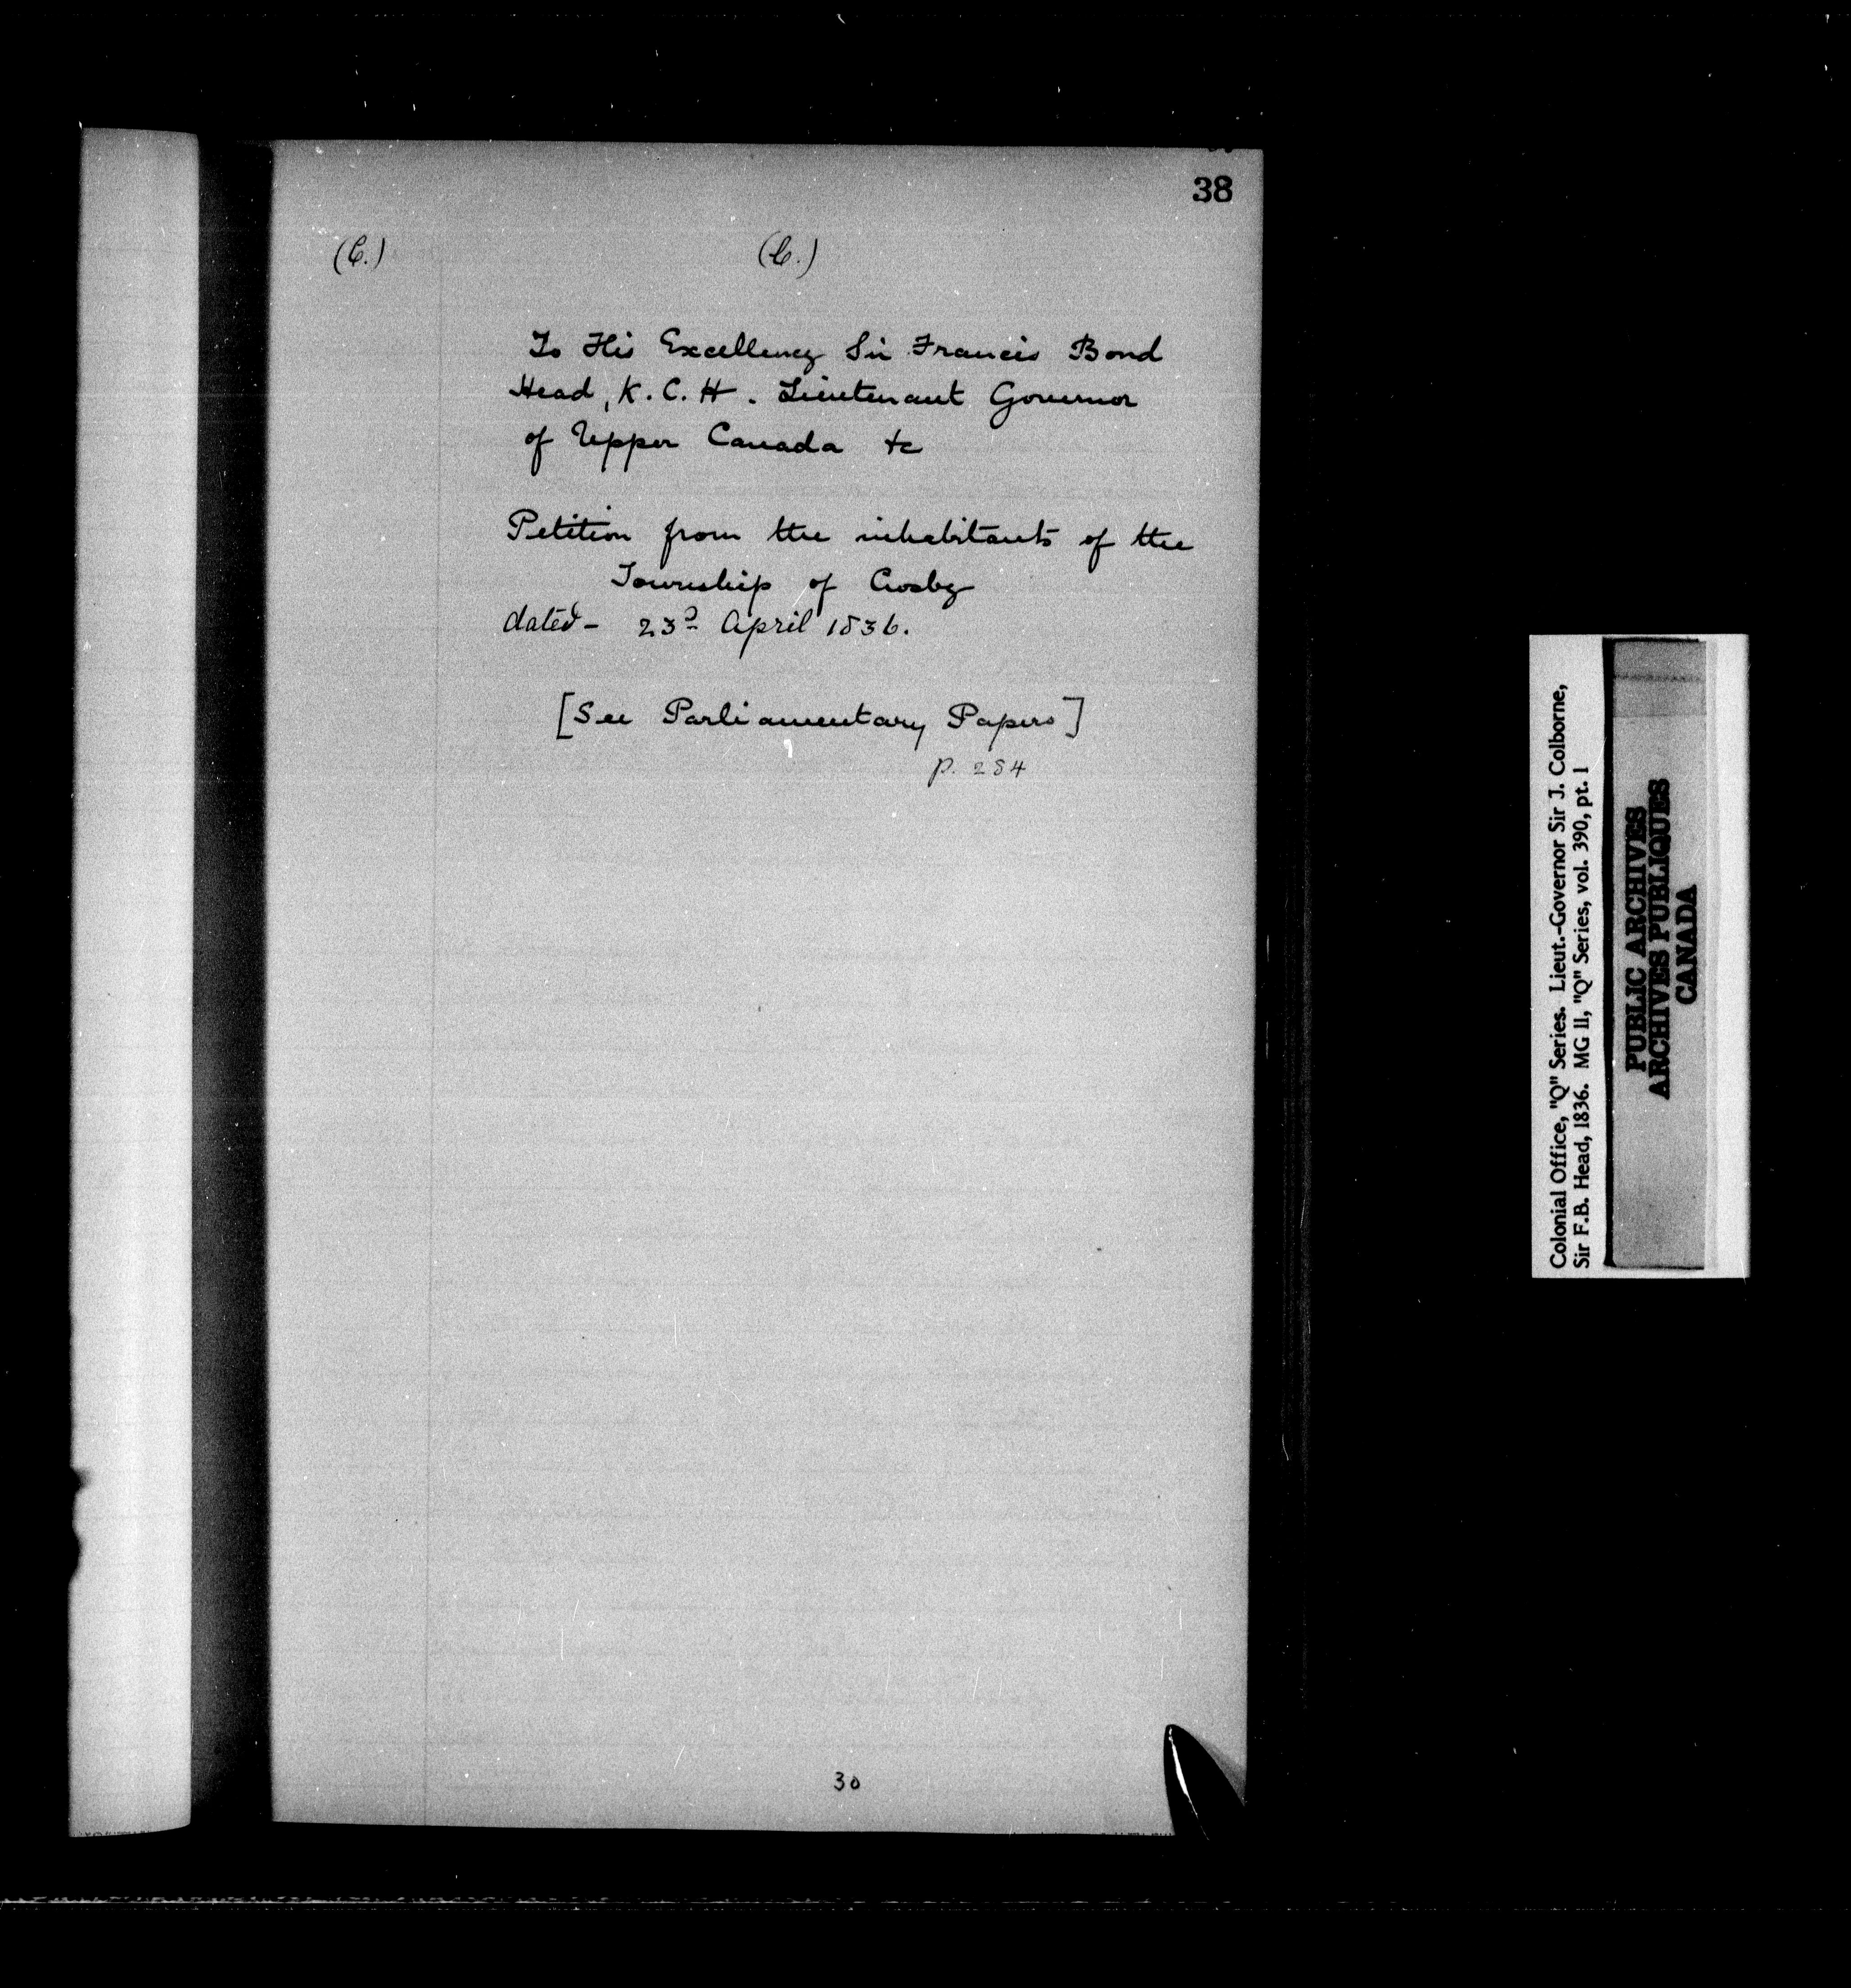 38
(C.) (C.)
To His Excellency Sir Francis Bond
Head, K.C.H. Lieutenant Governor
of Upper Canada &c
Petition from the inhabitants of the
Township of Crosby
dated - 23d April 1836.
[See Parliamentary Papers]
p. 284
30
Colonial Office, "Q" Series. Lieut.-Governor Sir J. Colborne,
Sir F.B. Head, 1836. MG 11, "Q" Series, vol. 390, pt. 1
PUBLIC ARCHIVES
ARCHIVES PUBLIQUES
CANADA